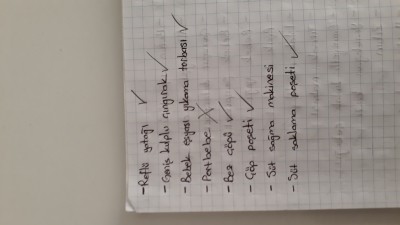 - Reflü yatağı ✓
- Geniş kulplu çıngırak ✓
- Bebek eşyası yıkama torbası ✓
- Portbebe X
- Bez çöpü ✓
- Çöp poşeti ✓
- Süt sağma makinesi
- Süt saklama poşeti ✓